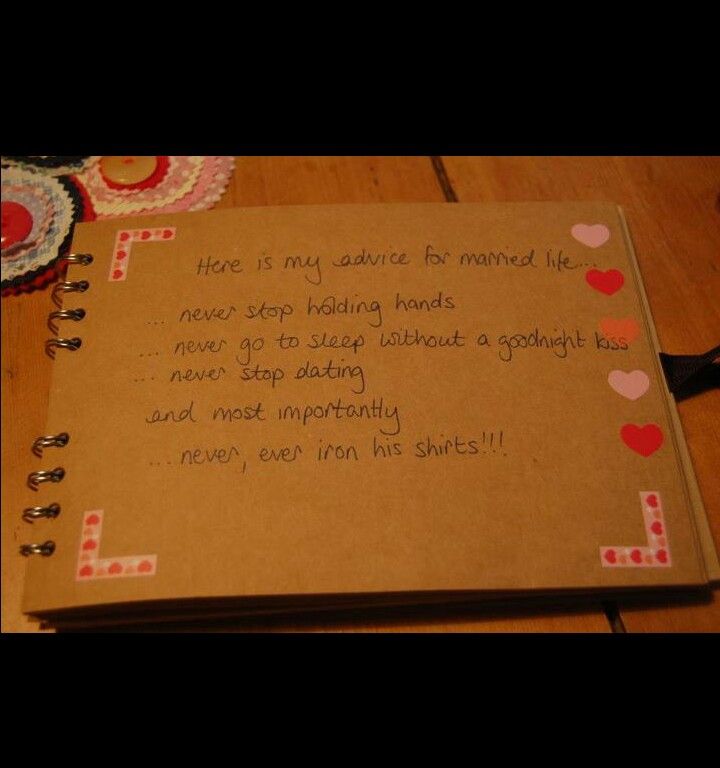 Here is my advice for married life....
... never stop holding hands
... never go to sleep without a goodnight kiss
... never stop dating
and most importantly
... never, ever iron his shirts!!!